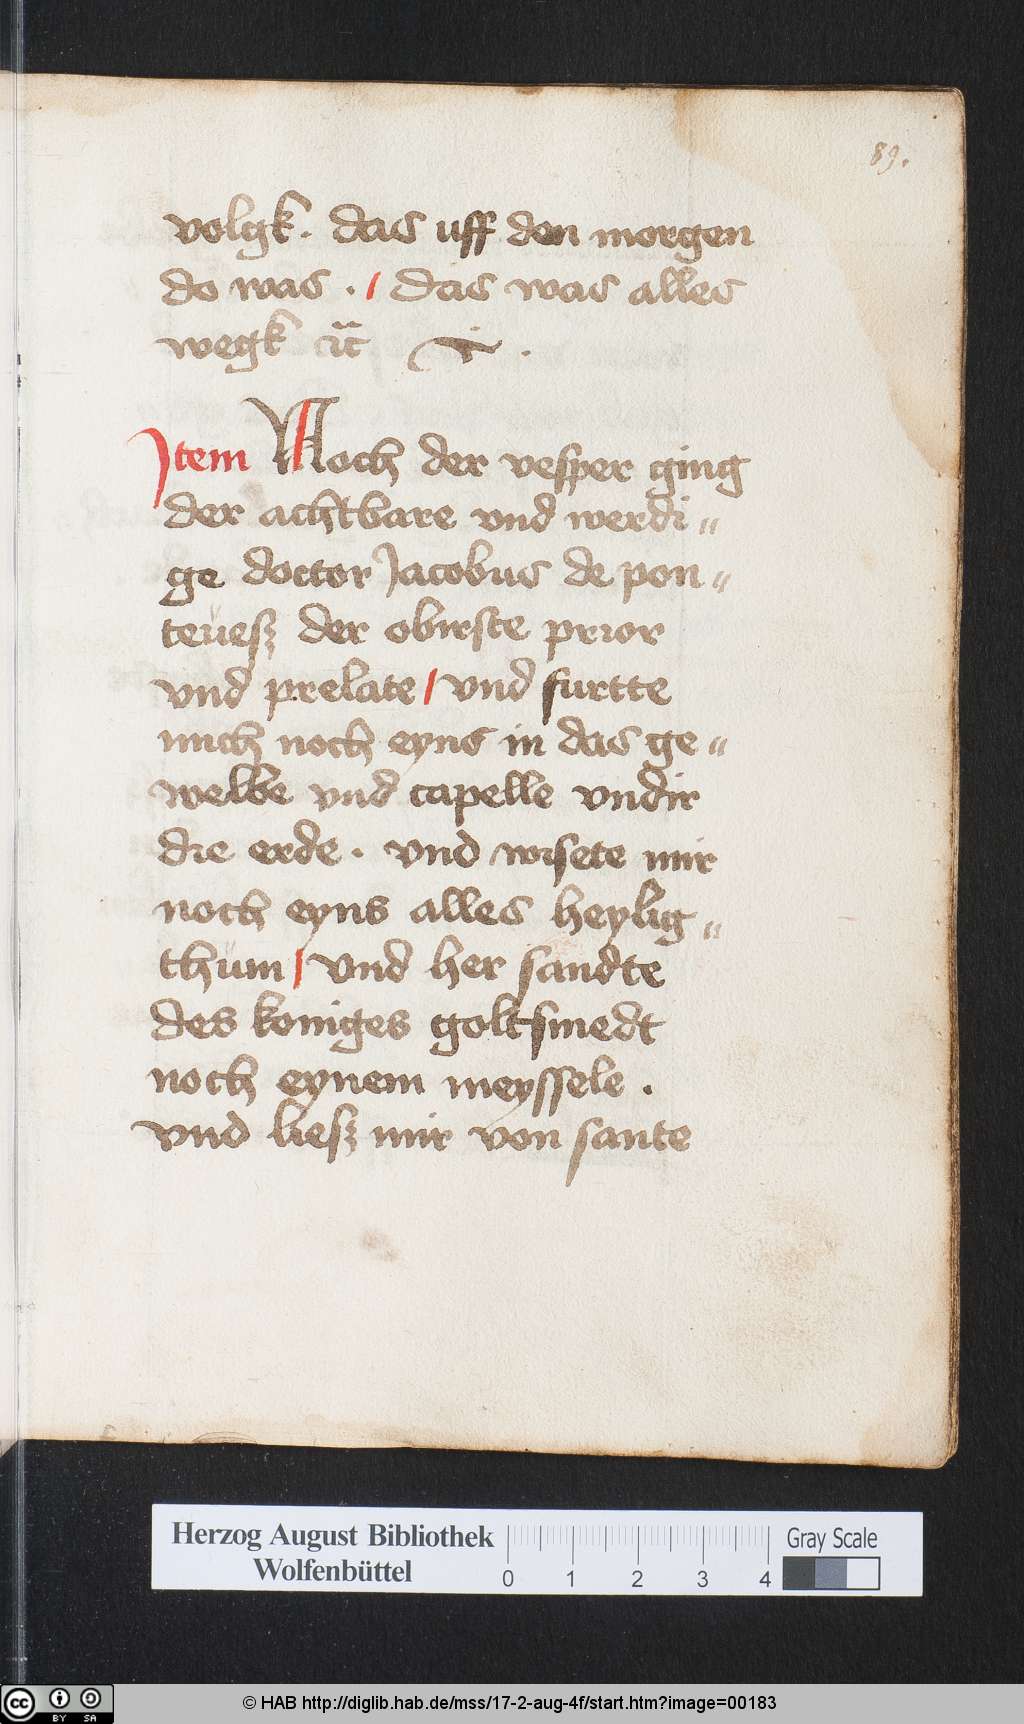 89.
volgk. das uff den morgen
do was . / das was alles
wegk
Jtem Noch der vesper ging
der achtbare vnd werdi„
ge doctor Jacobus de pon„
teuesz der obirste prior
vnd prelate / vnd furtte
mich noch eyns in das ge„
welbe vnd capelle vndir
die erde . vnd wisete mir
noch eyns alles heylig„
thum / vnd her sandte
des koniges goltsmedt
noch eynem meyssele .
vnd liesz mir von sante
Herzog August Bibliothek
Wolfenbüttel
0 1 2 3 4
Gray Scale
cc BY SA
© HAB http://diglib.hab.de/mss/17-2-aug-4f/start.htm?image=00183